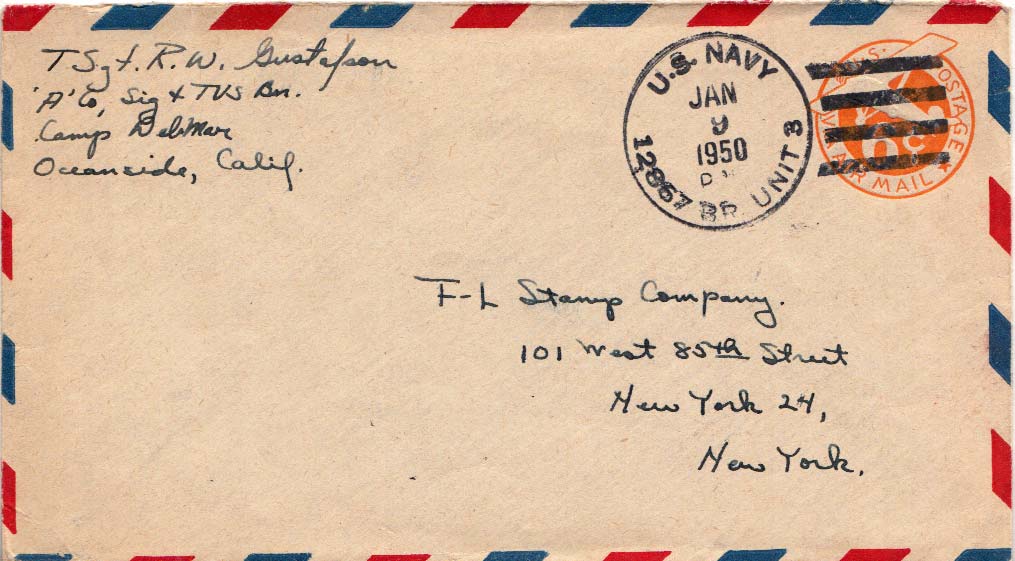 T Sgt. R. W. Gustafson
'A' Co, Sig & TUS Bn.
Camp DelMar
Oceanside, Calif.
U.S. NAVY
JAN
9
1950
12867 BR. UNIT 3
U.S. POSTAGE
6¢
VIA AIR MAIL
F-L Stamp Company.
101 West 85th Street
New York 24,
New York.